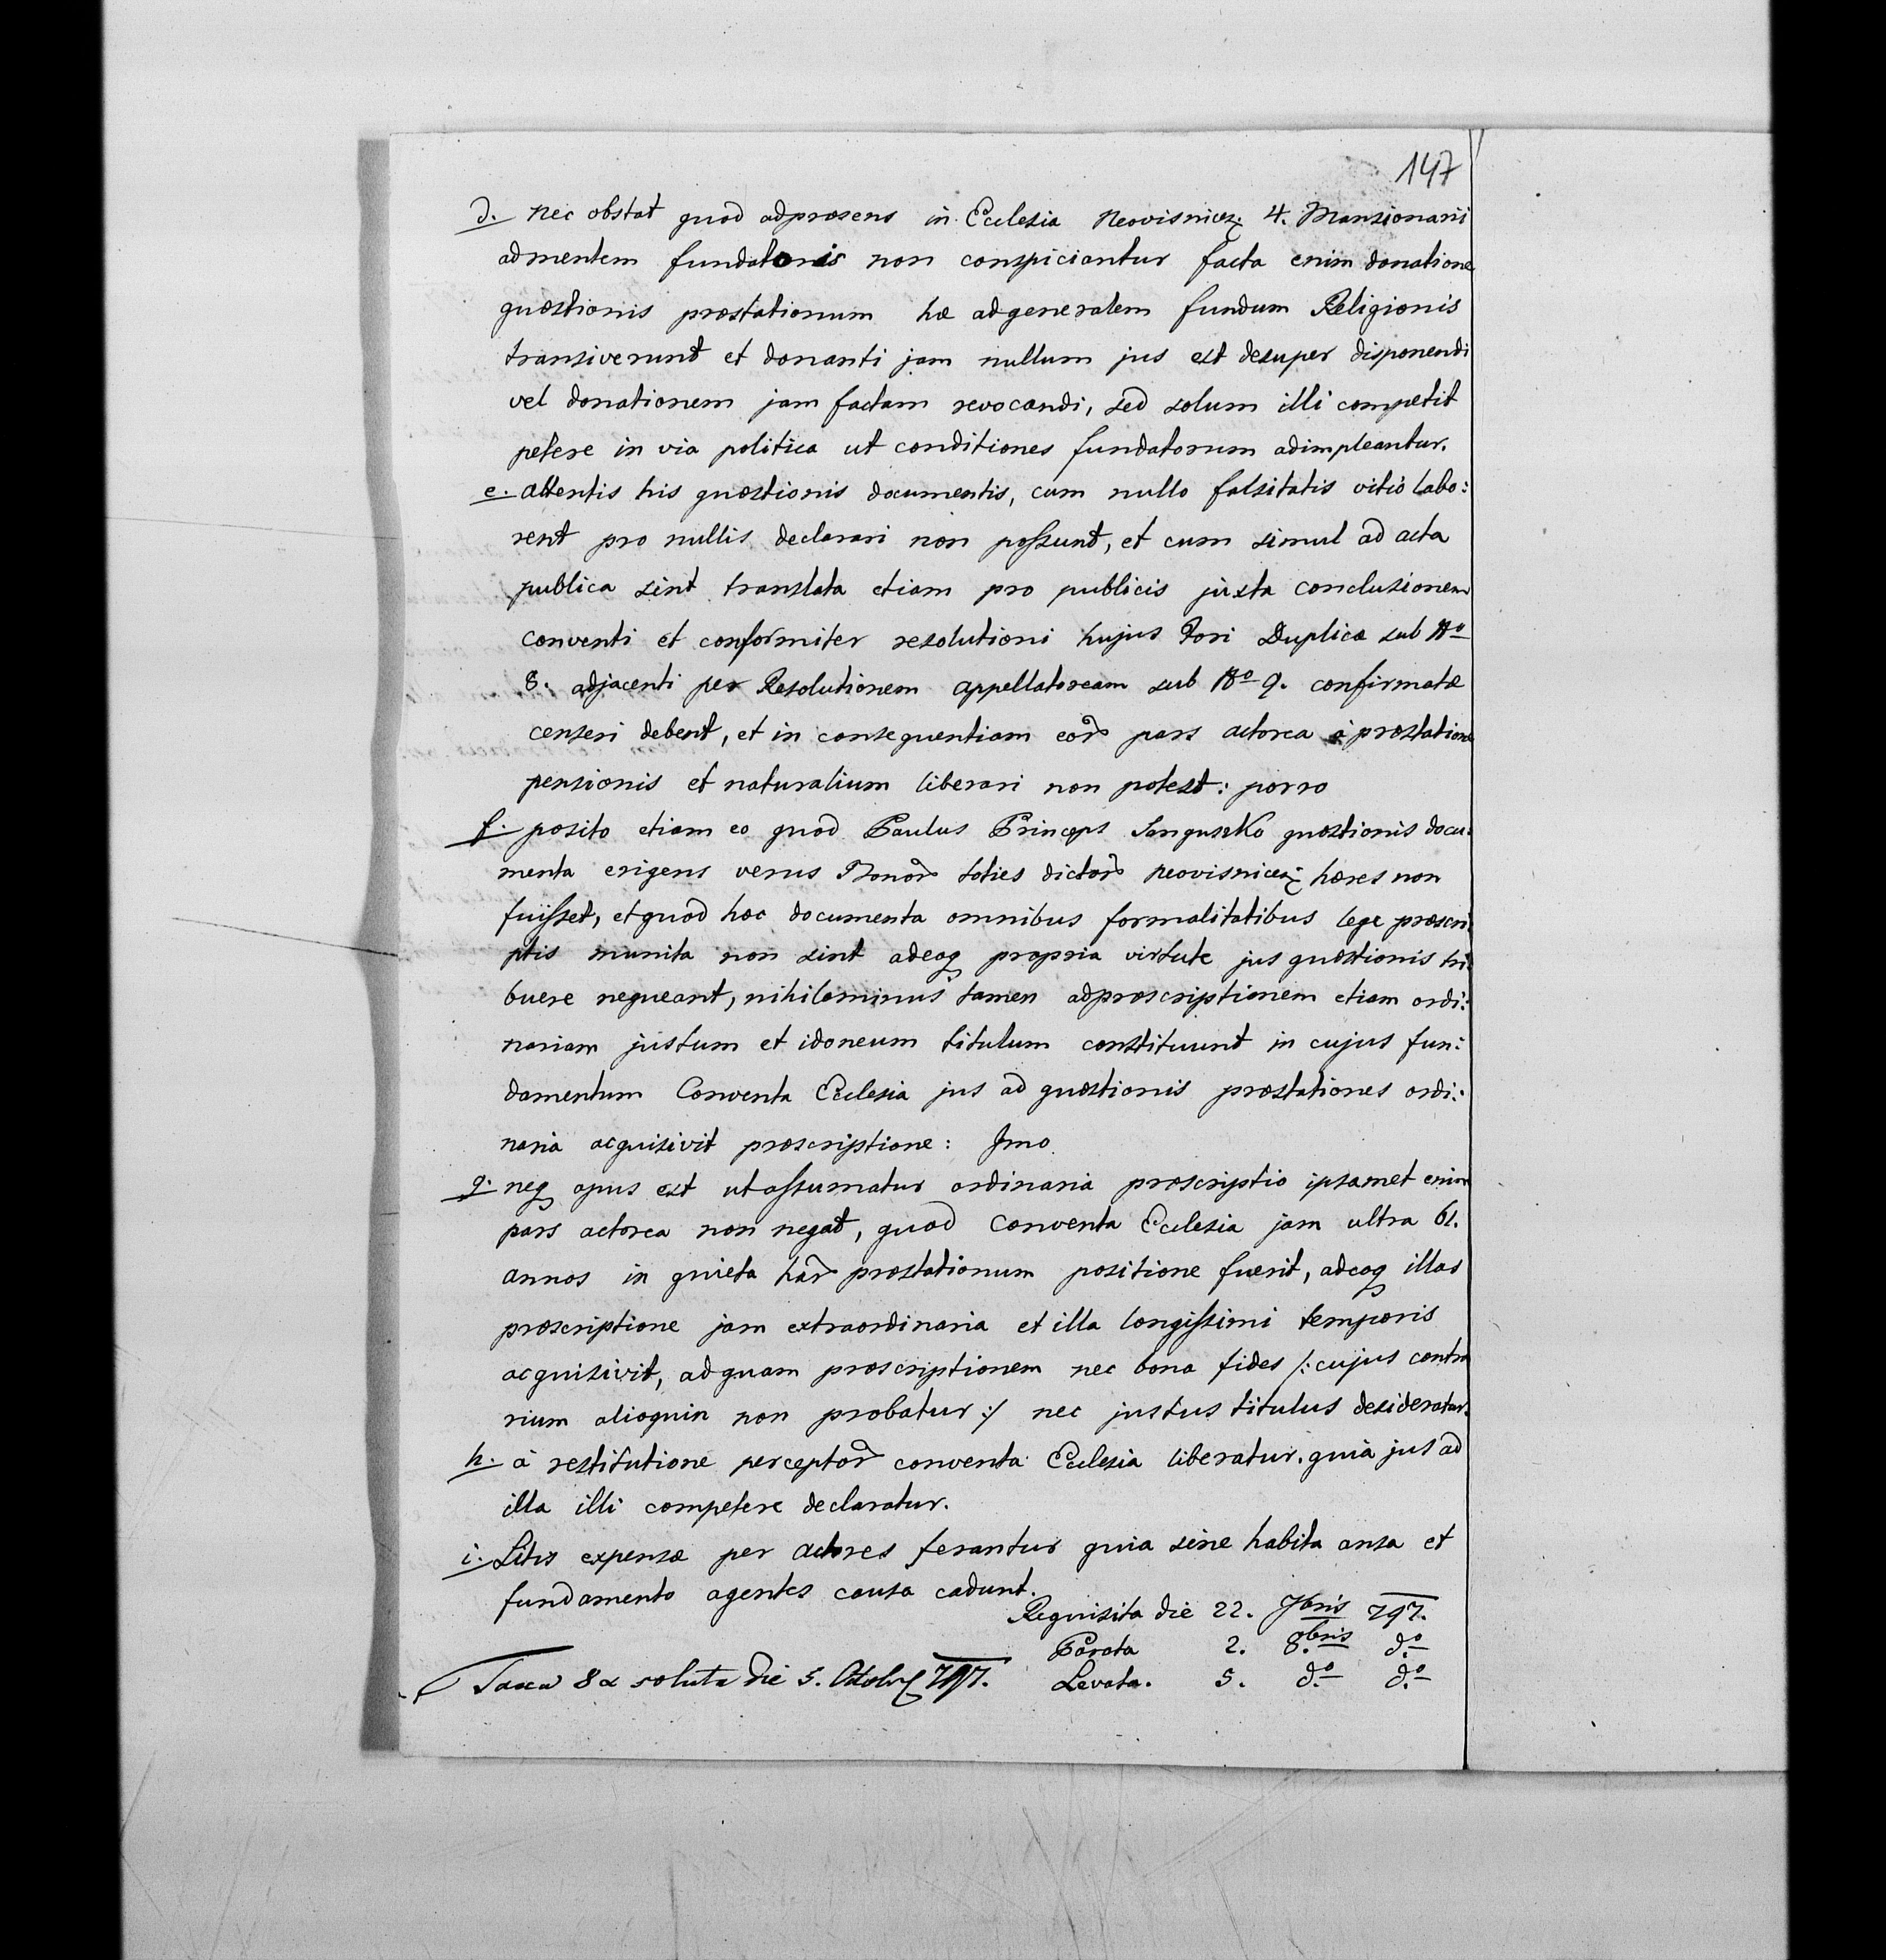 147
d. nec obstat quod adpræsens in Ecclesia Neovisnicz: 4. Mansionarii
admentem fundatoris non conspiciantur facta enim donatione
quæstionis præstationum hæ adgeneralem fundum Religionis
transiverunt et donanti jam nullum jus est desuper disponendi
vel donationem jam factam revocandi, sed solum illi competit
petere in via politica ut conditiones fundatorum adimpleantur.
e. attentis his quæstionis documentis, cum nullo falsitatis vitio labo:
rent pro nullis declarari non possunt, et cum simul ad acta
publica sint translata etiam pro publicis juxta conclusionem
conventi et conformiter resolutioni hujus Fori Duplicæ sub No
8. adjacenti per Resolutionem appellatoream sub No 9. confirmatæ
censeri debent, et in consequentiam eor pars actorea à præstatione
pensionis et naturalium liberari non potest: porro
f. posito etiam eo quod Paulus Princeps Sanguszko quæstionis docu:
menta erigens verus Bonor toties dictor Neovisnicz: hæres non
fuisset, et quod hæc documenta omnibus formalitatibus lege præscri:
ptis munita non sint adeoq propria virtute jus quæstionis tri:
buere nequeant, nihilominus tamen adpræscriptionem etiam ordi:
nariam justum et idoneum titulum constituunt in cujus fun:
damentum Conventa Ecclesia jus ad quæstionis præstationes ordi:
naria acquisivit præscriptione: Imo
g. neq opus est ut assumatur ordinaria præscriptio ipsamet enim
pars actorea non negat, quod conventa Ecclesia jam ultra 61.
annos in quieta har præstationum positione fuerit, adeoq illas
præscriptione jam extraordinaria et illa longissimi temporis
acquisivit, adquam præscriptionem nec bona fides /: cujus contra
rium alioquin non probatur :/ nec justus titulus desideratur.
h. à restitutione perceptor conventa Ecclesia liberatur. quia jus ad
illa illi competere declaratur.
i. Litis expensæ per actores ferantur quia sine habita ansa et
fundamento agentes causa cadunt.
Requisita die 22. 7bris 797.
Parata 2. 8.bris do
Levata. 5. do do
Taxa 8 x soluta die 5. Octobr 797.